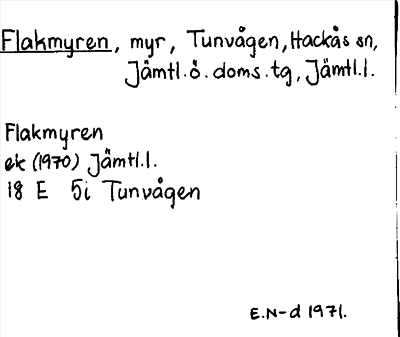 Flakmyren, myr, Tunvågen, Hackås sn,
Jämtl.ö.doms.tg, Jämtl.l.
Flakmyren
ek (1970) Jämtl.l.
18 E 5i Tunvågen
E.N-d 1971.